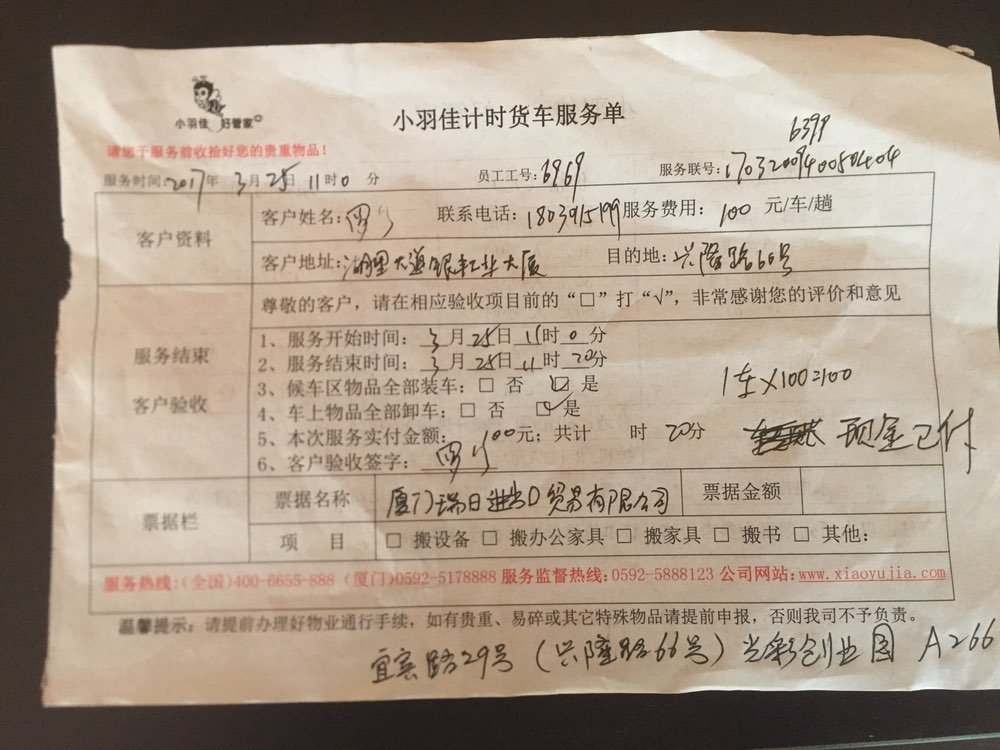 小羽佳 好管家
小羽佳计时货车服务单
6399
请您于服务前收拾好您的贵重物品！
服务时间：2017年 3月25日 11时0分 员工工号：6969 服务联号：17032009400504404
客户资料
客户姓名： 联系电话：18039151 服务费用：100 元/车/趟
客户地址：湖里大道银 大厦 目的地：兴隆路60号
尊敬的客户，请在相应验收项目前的“□”打“√”，非常感谢您的评价和意见
服务结束
客户验收
1、服务开始时间：3月25日11时0分
2、服务结束时间：3月25日11时20分
3、候车区物品全部装车：□ 否 ☑ 是
1车×100=100
4、车上物品全部卸车：□ 否 ☑ 是
5、本次服务实付金额：100元；共计 时 20分
现金已付
6、客户验收签字：
票据栏
票据名称 厦门瑞日进出口贸易有限公司 票据金额
项 目 □ 搬设备 □ 搬办公家具 □ 搬家具 □ 搬书 □ 其他：
服务热线：(全国)400-6655-888 (厦门)0592-5178888 服务监督热线：0592-5888123 公司网站：www.xiaoyujia.com
温馨提示：请提前办理好物业通行手续，如有贵重、易碎或其它特殊物品请提前申报，否则我司不予负责。
宜宾路29号（兴隆路66号）光彩创业园 A266